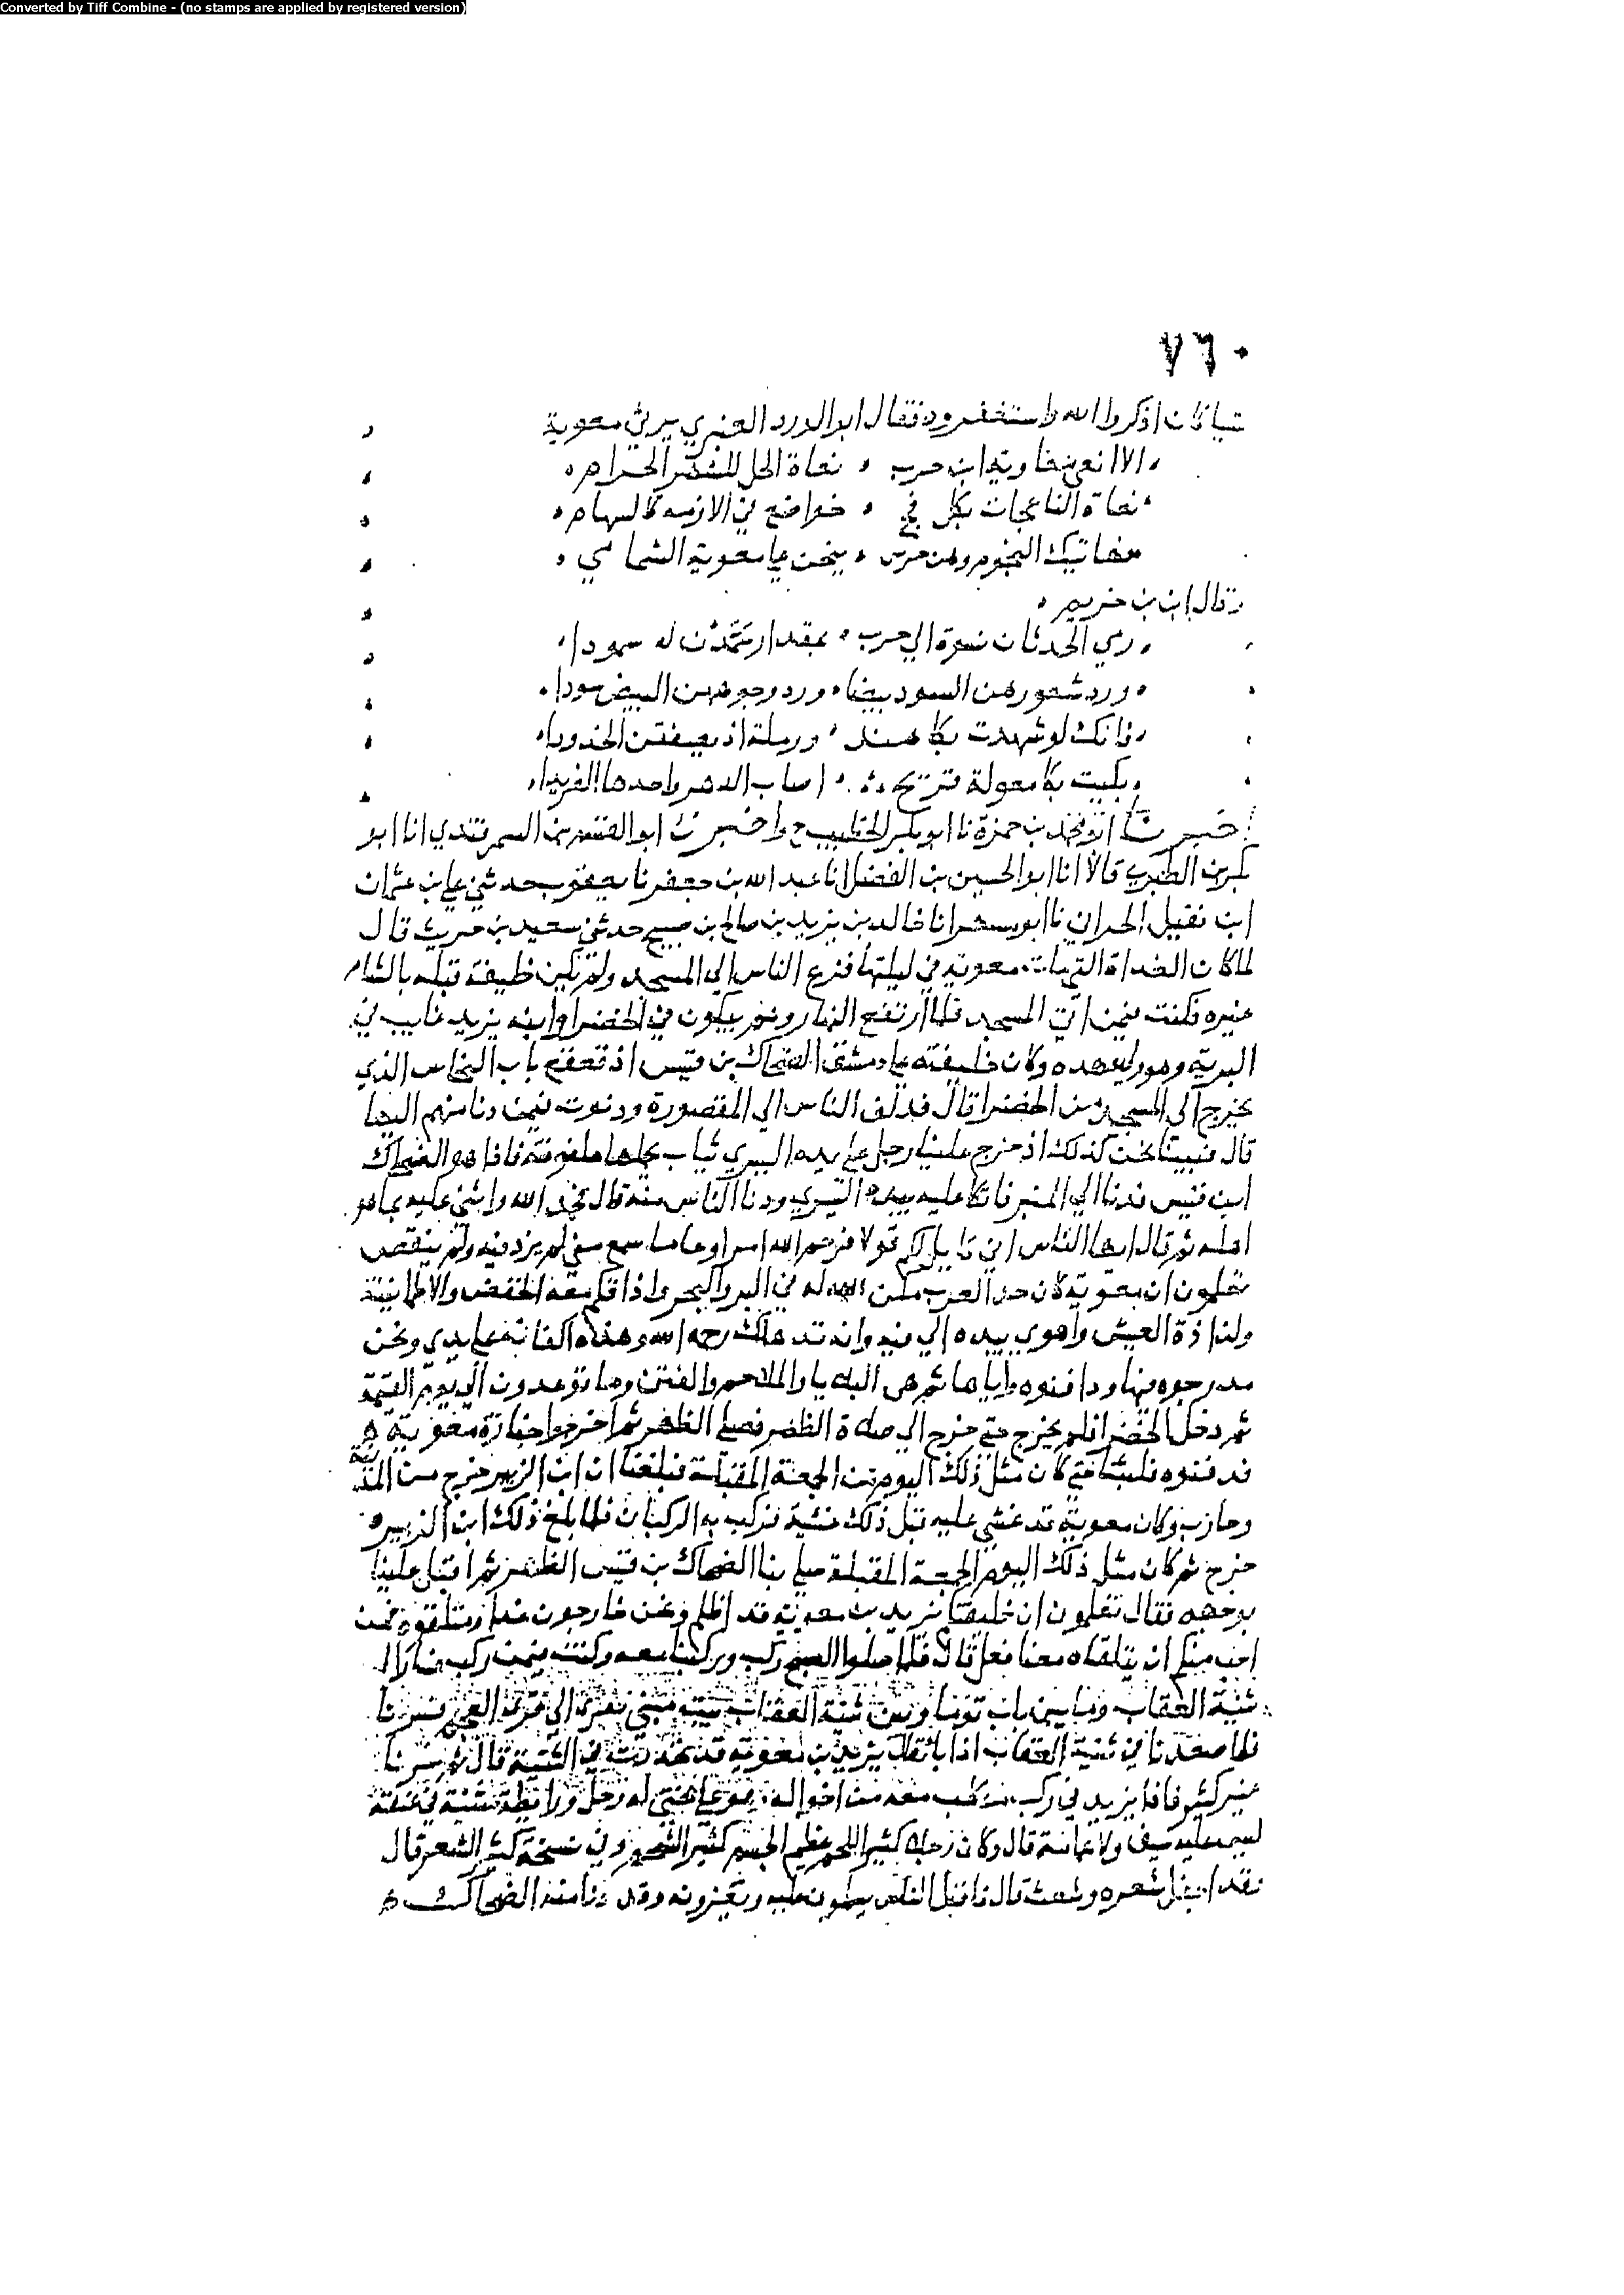 Converted by Tiff Combine - (no stamps are applied by registered version)
٧٦٠
اذكروا الله واستغفروه فقال ابو الورد العنبري يرثي معوية
الا انعى معاوية ابن حرب نعاة الحل للشهر الحرام
نعاة الناعجات بكل فج خواضع في الازمة كالسهام
النجوم وهن خرس ينحن على معوية الشامي
وقال ابن خريم
رمى الحدثان نسوة ال حرب بمقدار سمدن له سمودا
ورد شعورهن السود بيضا ورد وجوههن البيض سودا
فانك لو شهدت بكا هند ورملة اذ يصفقن الخدودا
بكيت بكا معولة قريحة اصاب الدهر واحدها الفريدا
اخبرنا ابو محمد بن حمزة نا ابو بكر الخطيب ح واخبرنا ابو القسم بن السمرقندي انا ابو
بكر بن الطبري قالا انا ابو الحسين بن الفضل انا عبد الله بن جعفر نا يعقوب حدثني علي بن عثمان
ابن نفيل الحراني نا ابو مسهر انا خالد بن يزيد بن صالح بن صبيح حدثني سعيد بن حريث قال
لما كان الغداة التي مات معوية في ليلتها فزع الناس الى المسجد ولم يكن خليفة قبله بالشام
غيره فكنت فيمن اتى المسجد فلما ارتفع النهار وهم يبكون في الخضرا وابنه يزيد غايب في
البرية وهو ولي عهده وكان خليفته على دمشق الضحاك بن قيس اذ قعقع باب النحاس الذي
يخرج الى المسجد من الخضرا قال فدلف الناس الى المقصورة ودنوت فيمن دنا منهم اليها
قال فبينا نحن كذلك اذ خرج علينا رجل على يده اليسرى ثياب ملفوفة فاذا هو الضحاك
ابن قيس فدنا الى المنبر فاتكا عليه بيده اليسرى ودنا الناس منه قال فحمد الله واثنى عليه بما هو
اهله ثم قال ايها الناس اني قايل لكم قولا فرحم الله امرا وعا ما سمع مني لم يزد فيه ولم ينقص
تعلمون ان معوية كان حد العرب مكن الله له في البر والبحر واذاقكم معه الخفض والطمانينة
ولذاذة العيش واهوى بيده الى فيه وانه قد هلك رحمه الله وهذه اكفانه على يدي ونحن
مدرجوه فيها ودافنوه واياها ثم هي البلايا والملاحم والفتن وما توعدون الى يوم القيمة
ثم دخل الخضرا فلم يخرج حتى خرج الى صلاة الظهر فصلى الظهر ثم اخرجوا جنازة معوية
فدفنوه فلبثنا حتى كان مثل ذلك اليوم من الجمعة المقبلة فبلغنا ان ابن الزبير خرج من المدينة
وحارب وكان معوية قد غشي عليه قبل ذلك غشية فركب به الركبان فلما بلغ ذلك ابن الزبير
خرج ثم كان مثل ذلك اليوم الجمعة المقبلة صلى بنا الضحاك بن قيس الظهر ثم اقبل علينا
بوجهه فقال تعلمون ان خليفتنا يزيد بن معوية قد اظلكم ونحن خارجون غدا ومتلقوه فمن
احب منكم ان يتلقاه معنا فعل قال فلما صلوا الصبح ركب وركبنا معه وكنت فيمن ركب فسار الى
ثنية العقاب وما بين باب توما وبين ثنية العقاب بيت مبني
فلما صعدنا في ثنية العقاب اذا باثقال يزيد بن معوية قد في الثنية قال ثم سرنا
غير كثير فاذا يزيد في ركب من كلب معه من اخواله وهو على بختي له رحل ورايطة مثنية في عنقه
ليس عليه سيف ولا عمامة قال وكان رجلا كثير اللحم عظيم الجسم كثير الشحم وفي نسخة كثير الشعر قال
وقد اجفل شعره وشعث قال فاقبل الناس يسلمون عليه ويعزونه وقد دنا منه الضحاك